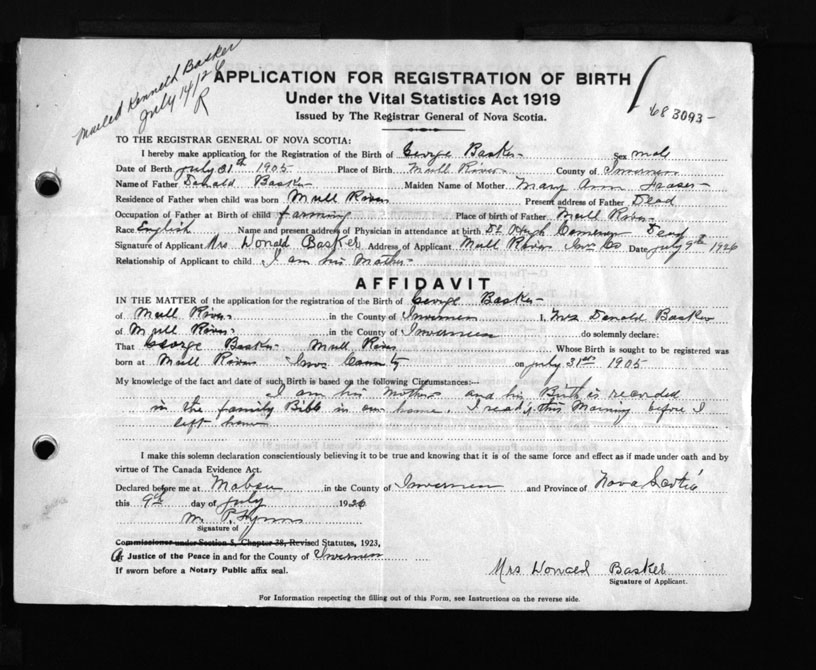 Mailed Kenneth Basker
July 14/26
R
APPLICATION FOR REGISTRATION OF BIRTH
Under the Vital Statistics Act 1919
Issued by The Registrar General of Nova Scotia.
683093-
TO THE REGISTRAR GENERAL OF NOVA SCOTIA:
I hereby make application for the Registration of the Birth of George Basker Sex male
Date of Birth July 31st 1905 Place of Birth Mull River County of Inverness
Name of Father Donald Basker Maiden Name of Mother Mary Ann Fraser
Residence of Father when child was born Mull River Present address of Father Dead
Occupation of Father at Birth of child farming Place of birth of Father Mull River
Race English Name and present address of Physician in attendance at birth Dr Hugh Cameron Dead
Signature of Applicant Mrs Donald Basker Address of Applicant Mull River Inv Co Date July 9th 1926
Relationship of Applicant to child I am his Mother
AFFIDAVIT
IN THE MATTER of the application for the registration of the Birth of George Basker
of Mull River in the County of Inverness I, Mrs Donald Basker
of Mull River in the County of Inverness do solemnly declare:
That George Basker Mull River Whose Birth is sought to be registered was
born at Mull River Invs County on July 31st 1905
My knowledge of the fact and date of such Birth is based on the following Circumstances:—
I am his Mother and his Birth is recorded
in the family Bible in our home. I read it this Morning before I
left home
I make this solemn declaration conscientiously believing it to be true and knowing that it is of the same force and effect as if made under oath and by
virtue of The Canada Evidence Act.
Declared before me at Mabou in the County of Inverness and Province of Nova Scotia
this 9th day of July 1926
M. P.
Signature of
Commissioner under Section 5, Chapter 38, Revised Statutes, 1923,
A Justice of the Peace in and for the County of Inverness
If sworn before a Notary Public affix seal.
Mrs Donald Basker
Signature of Applicant.
For Information respecting the filling out of this Form, see Instructions on the reverse side.